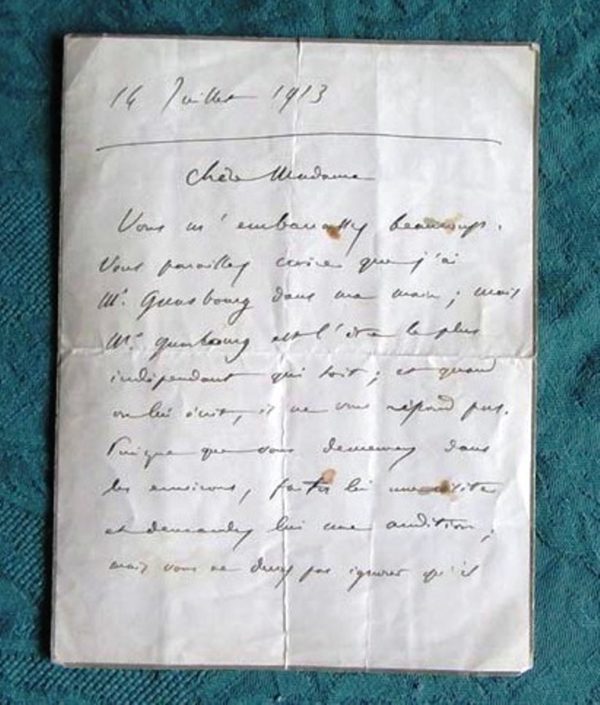 14 Juillet 1913
Chère Madame
Vous m'embarassez beaucoup.
Vous paraissez croire que j'ai
Mr. Gunsbourg dans ma main; mais
Mr. Gunsbourg est l'être le plus
indépendant qui soit; et quand
on lui écrit, il ne vous répond pas.
Puisque vous demeurez dans
les environs, faites lui une visite
et demandez lui une audition;
mais vous ne devez pas ignorer qu'il